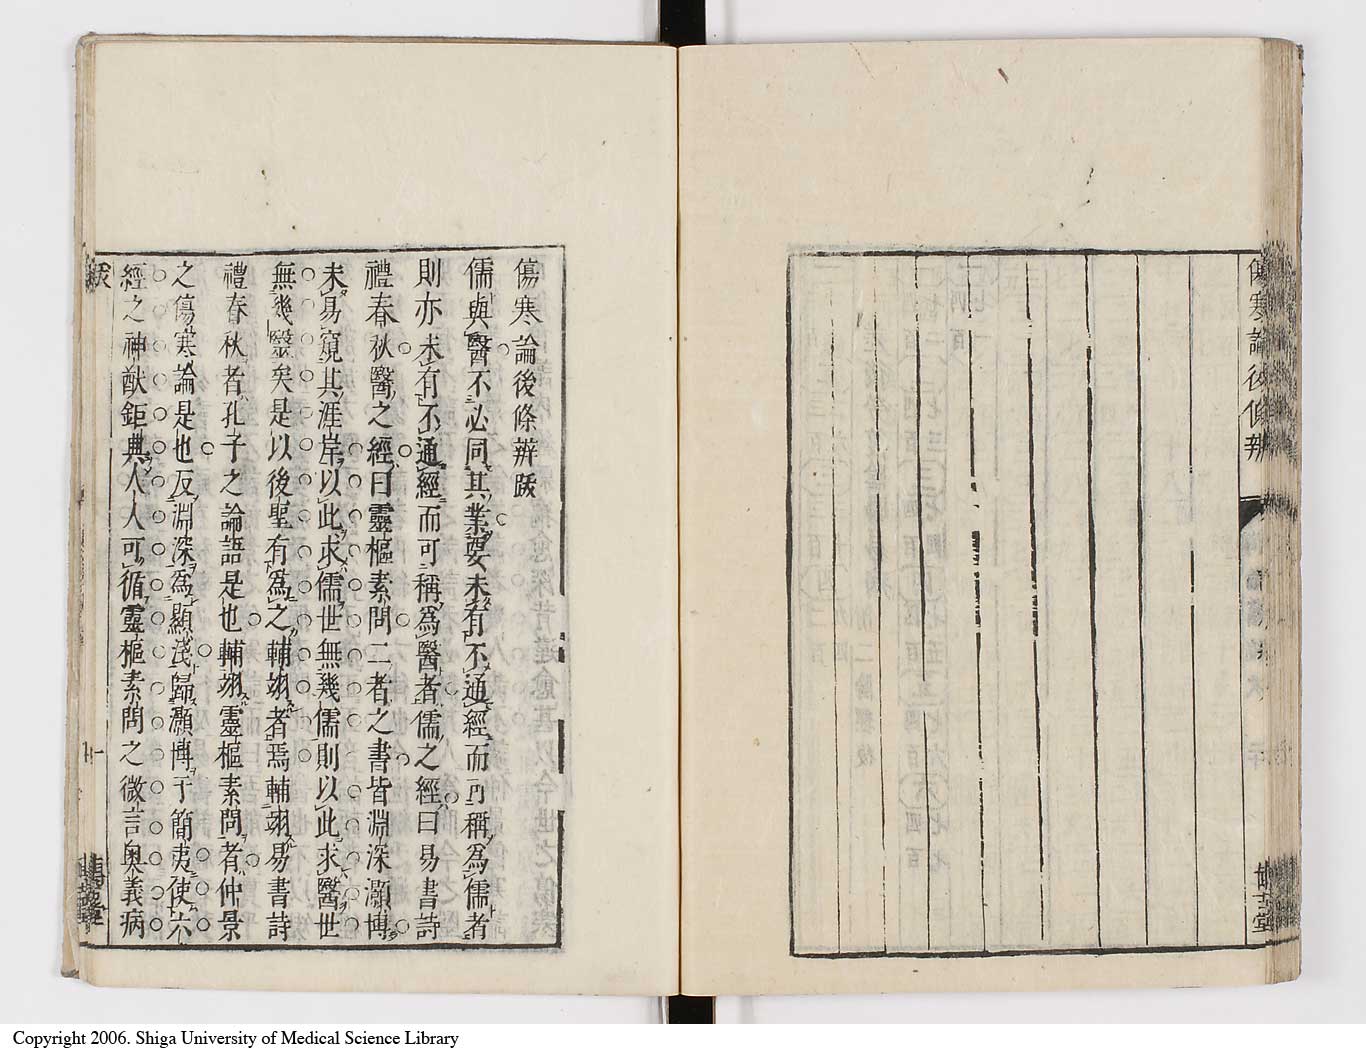 傷寒論後條辨
傷寒論後條辨跋
儒與醫不必同其業要未有不通經而可稱爲儒者
則亦未有不通經而可稱爲醫者儒之經曰易書詩
禮春秋醫之經曰靈樞素問二者之書皆淵深灝博
未易窺其涯岸以此求儒世無幾儒則以此求醫世
無幾醫矣是以後聖有爲之輔翊者焉輔翊易書詩
禮春秋者孔子之論語是也輔翊靈樞素問者仲景
之傷寒論是也反淵深爲顯淺歸灝博于簡夷使六
經之神猷鉅典人人可循靈樞素問之微言奧義病
跋
一
Copyright 2006. Shiga University of Medical Science Library